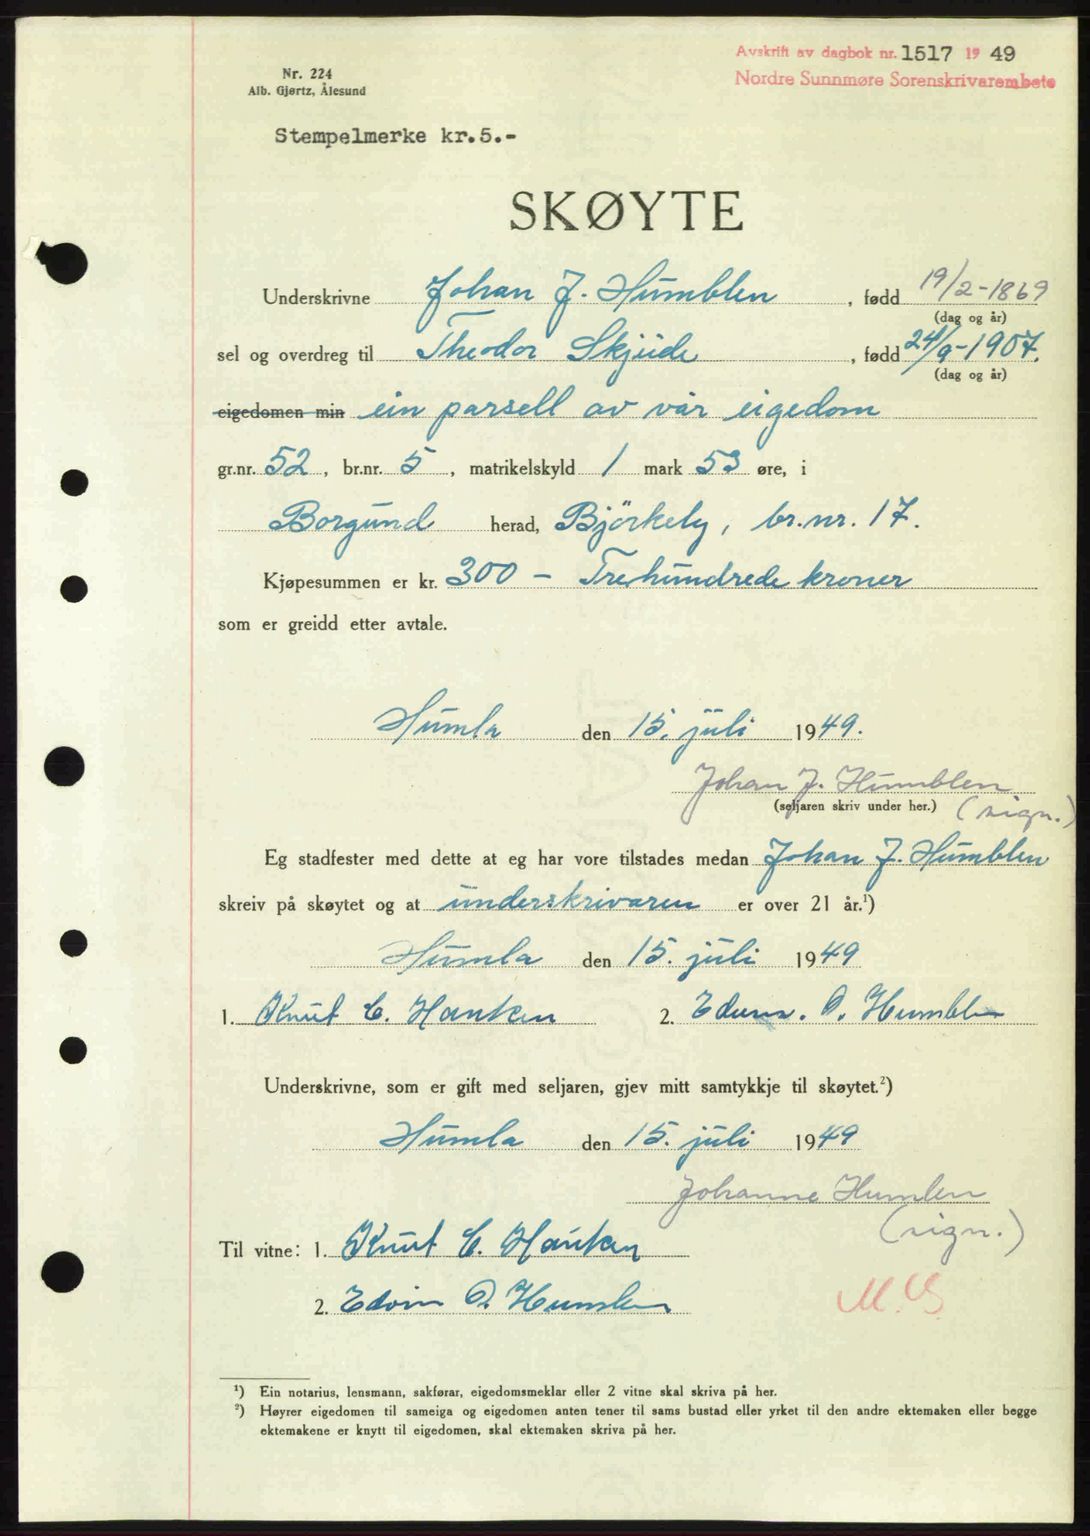 Avskrift av dagbok nr. 1517 1949
Nordre Sunnmøre Sorenskrivarembete
Nr. 224
Alb. Gjørtz, Ålesund
Stempelmerke kr.5.-
SKØYTE
Underskrivne Johan J. Humblen, fødd 19/2-1869
(dag og år)
sel og overdreg til Theodor Skjüde, fødd 24/9-1907.
(dag og år)
eigedomen min ein parsell av vår eigedom
gr.nr. 52, br.nr. 5, matrikelskyld 1 mark 53 øre, i
Borgund herad, Björkely, br.nr. 17.
Kjøpesummen er kr. 300 - Trehundrede kroner
som er greidd etter avtale.
Humla den 15. juli 1949.
Johan J. Humblen
(seljaren skriv under her.) (sign.)
Eg stadfester med dette at eg har vore tilstades medan Johan J. Humblen
skreiv på skøytet og at underskrivaren er over 21 år.¹)
Humla den 15. juli 1949
1. Knut C. Hanken 2. Edvin O. Humblen
Underskrivne, som er gift med seljaren, gjev mitt samtykkje til skøytet.²)
Humla den 15. juli 1949
Johanne Humlen
(sign.)
Til vitne: 1. Knut C. Hanken
2. Edvin O. Humblen
¹) Ein notarius, lensmann, sakførar, eigedomsmeklar eller 2 vitne skal skriva på her.
²) Høyrer eigedomen til sameiga og eigedomen anten tener til sams bustad eller yrket til den andre ektemaken eller begge
ektemakene er knytt til eigedomen, skal ektemaken skriva på her.